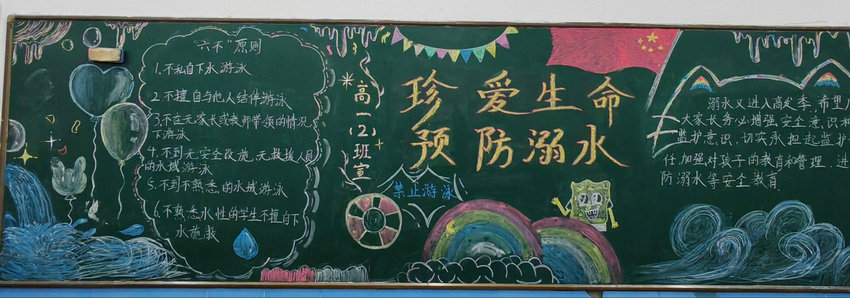 "六不"原则
1.不私自下水游泳
2.不擅自与他人结伴游泳
3.不在无家长或教师带领的情况
下游泳
4.不到无安全设施,无救援人员
的水域游泳
5.不到不熟悉的水域游泳
6.不熟悉水性的学生不擅自下
水施救
高一(2)班宣
珍爱生命
预防溺水
禁止游泳
溺水又进入高发季,希望广
大家长务必增强安全意识和
监护意识,切实承担起监护
任加强对孩子的教育和管理,进
防溺水等安全教育